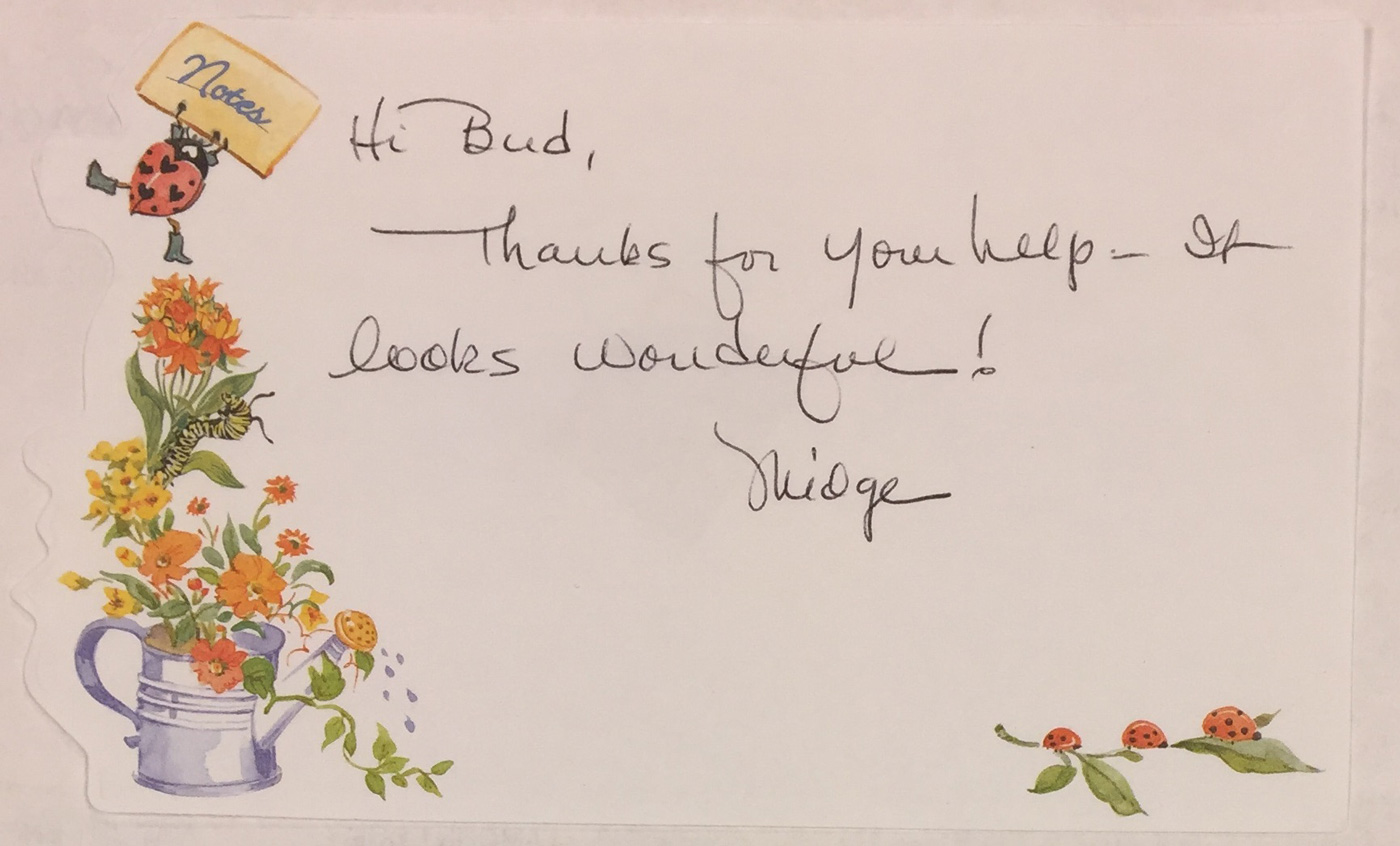 Notes
Hi Bud,
Thanks for your help - It
looks wonderful!
Midge